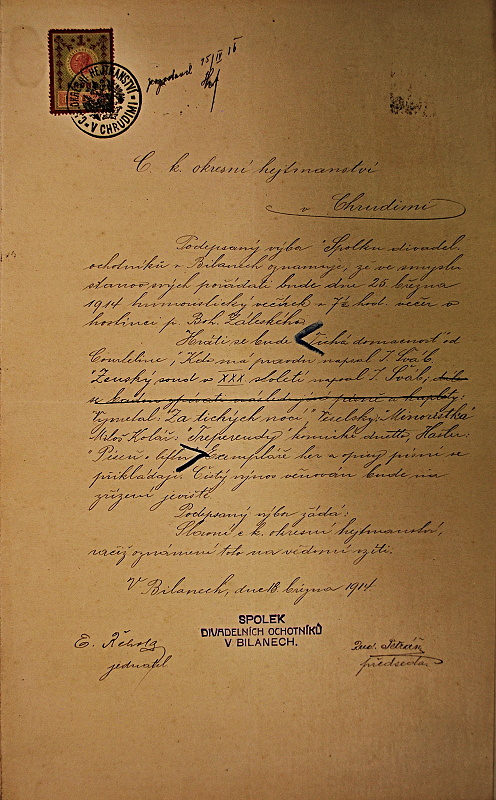 1
OKRESNÍ HEJTMANSTVÍ
V CHRUDIMI
15/IV
C. k. okresní hejtmanství
v Chrudimi
Podepsaný výbor Spolku divadel.
ochotníků v Bílanech oznamuje, že ve smyslu
stanov svých pořádati bude dne 25. března
1914 humoristický večírek o 7½ hod. večer v
hostinci p. Boh. Záleského.
Hráti se bude "Tichá domácnost" od
Courteline, "Kdo má pravdu napsal J. Šváb,
"Ženský soud v XXX. století napsal J. Šváb,
Vymetal: "Za tichých nocí" Veselský: "Minoristka"
Miloš Kolár: "Treperendy" komické duetto, Hašler:
"Píseň o exempláře her a opisy písní se
přikládají. Čistý výnos věnován bude na
zřízení jeviště.
Podepsaný výbor žádá:
Slavné c. k. okresní hejtmanství,
račiž oznámení toto na vědomí vzíti.
V Bílanech, dne 18. března 1914
SPOLEK
DIVADELNÍCH OCHOTNÍKŮ
V BILANECH.
E.
jednatel
předseda